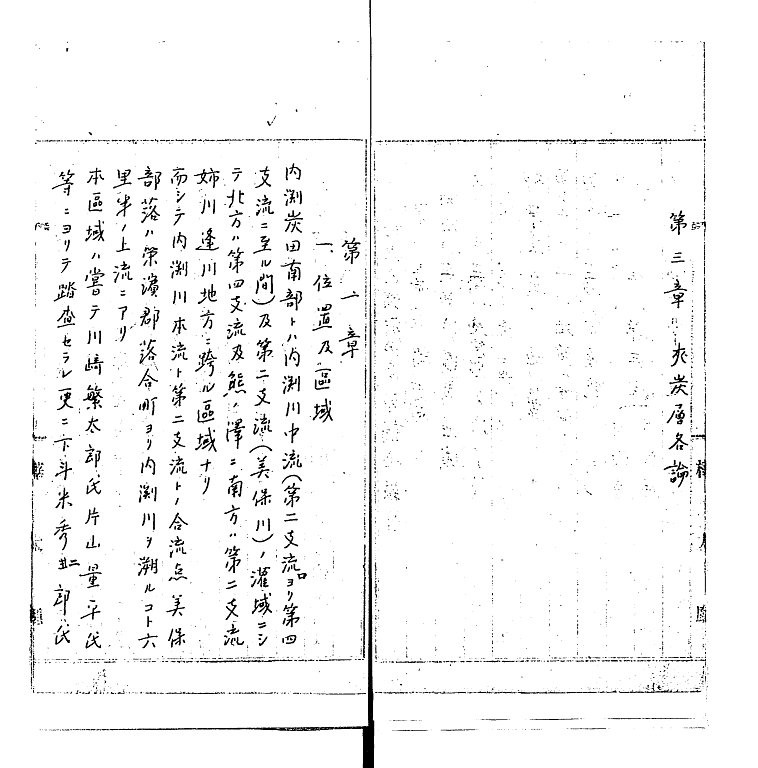 第三章 夾炭層各論
第一章
一、位置及區域
内渕炭田南部トハ内渕川中流(第二支流ヨリ第四
支流ニ至ル間)及第二支流(美保川)ノ灌域ニシ
テ北方ハ第四支流及熊ノ澤ニ南方ハ第二支流
姉川逢川地方ニ跨ル區域ナリ
而シテ内渕川本流ト第二支流トノ合流点美保
部落ハ栄濱郡落合町ヨリ内渕川ヲ溯ルコト六
里半ノ上流ニアリ
本區域ハ嘗テ川崎繁太郎氏片山量平氏
等ニヨリテ踏査セラレ更ニ下斗米秀二郎氏